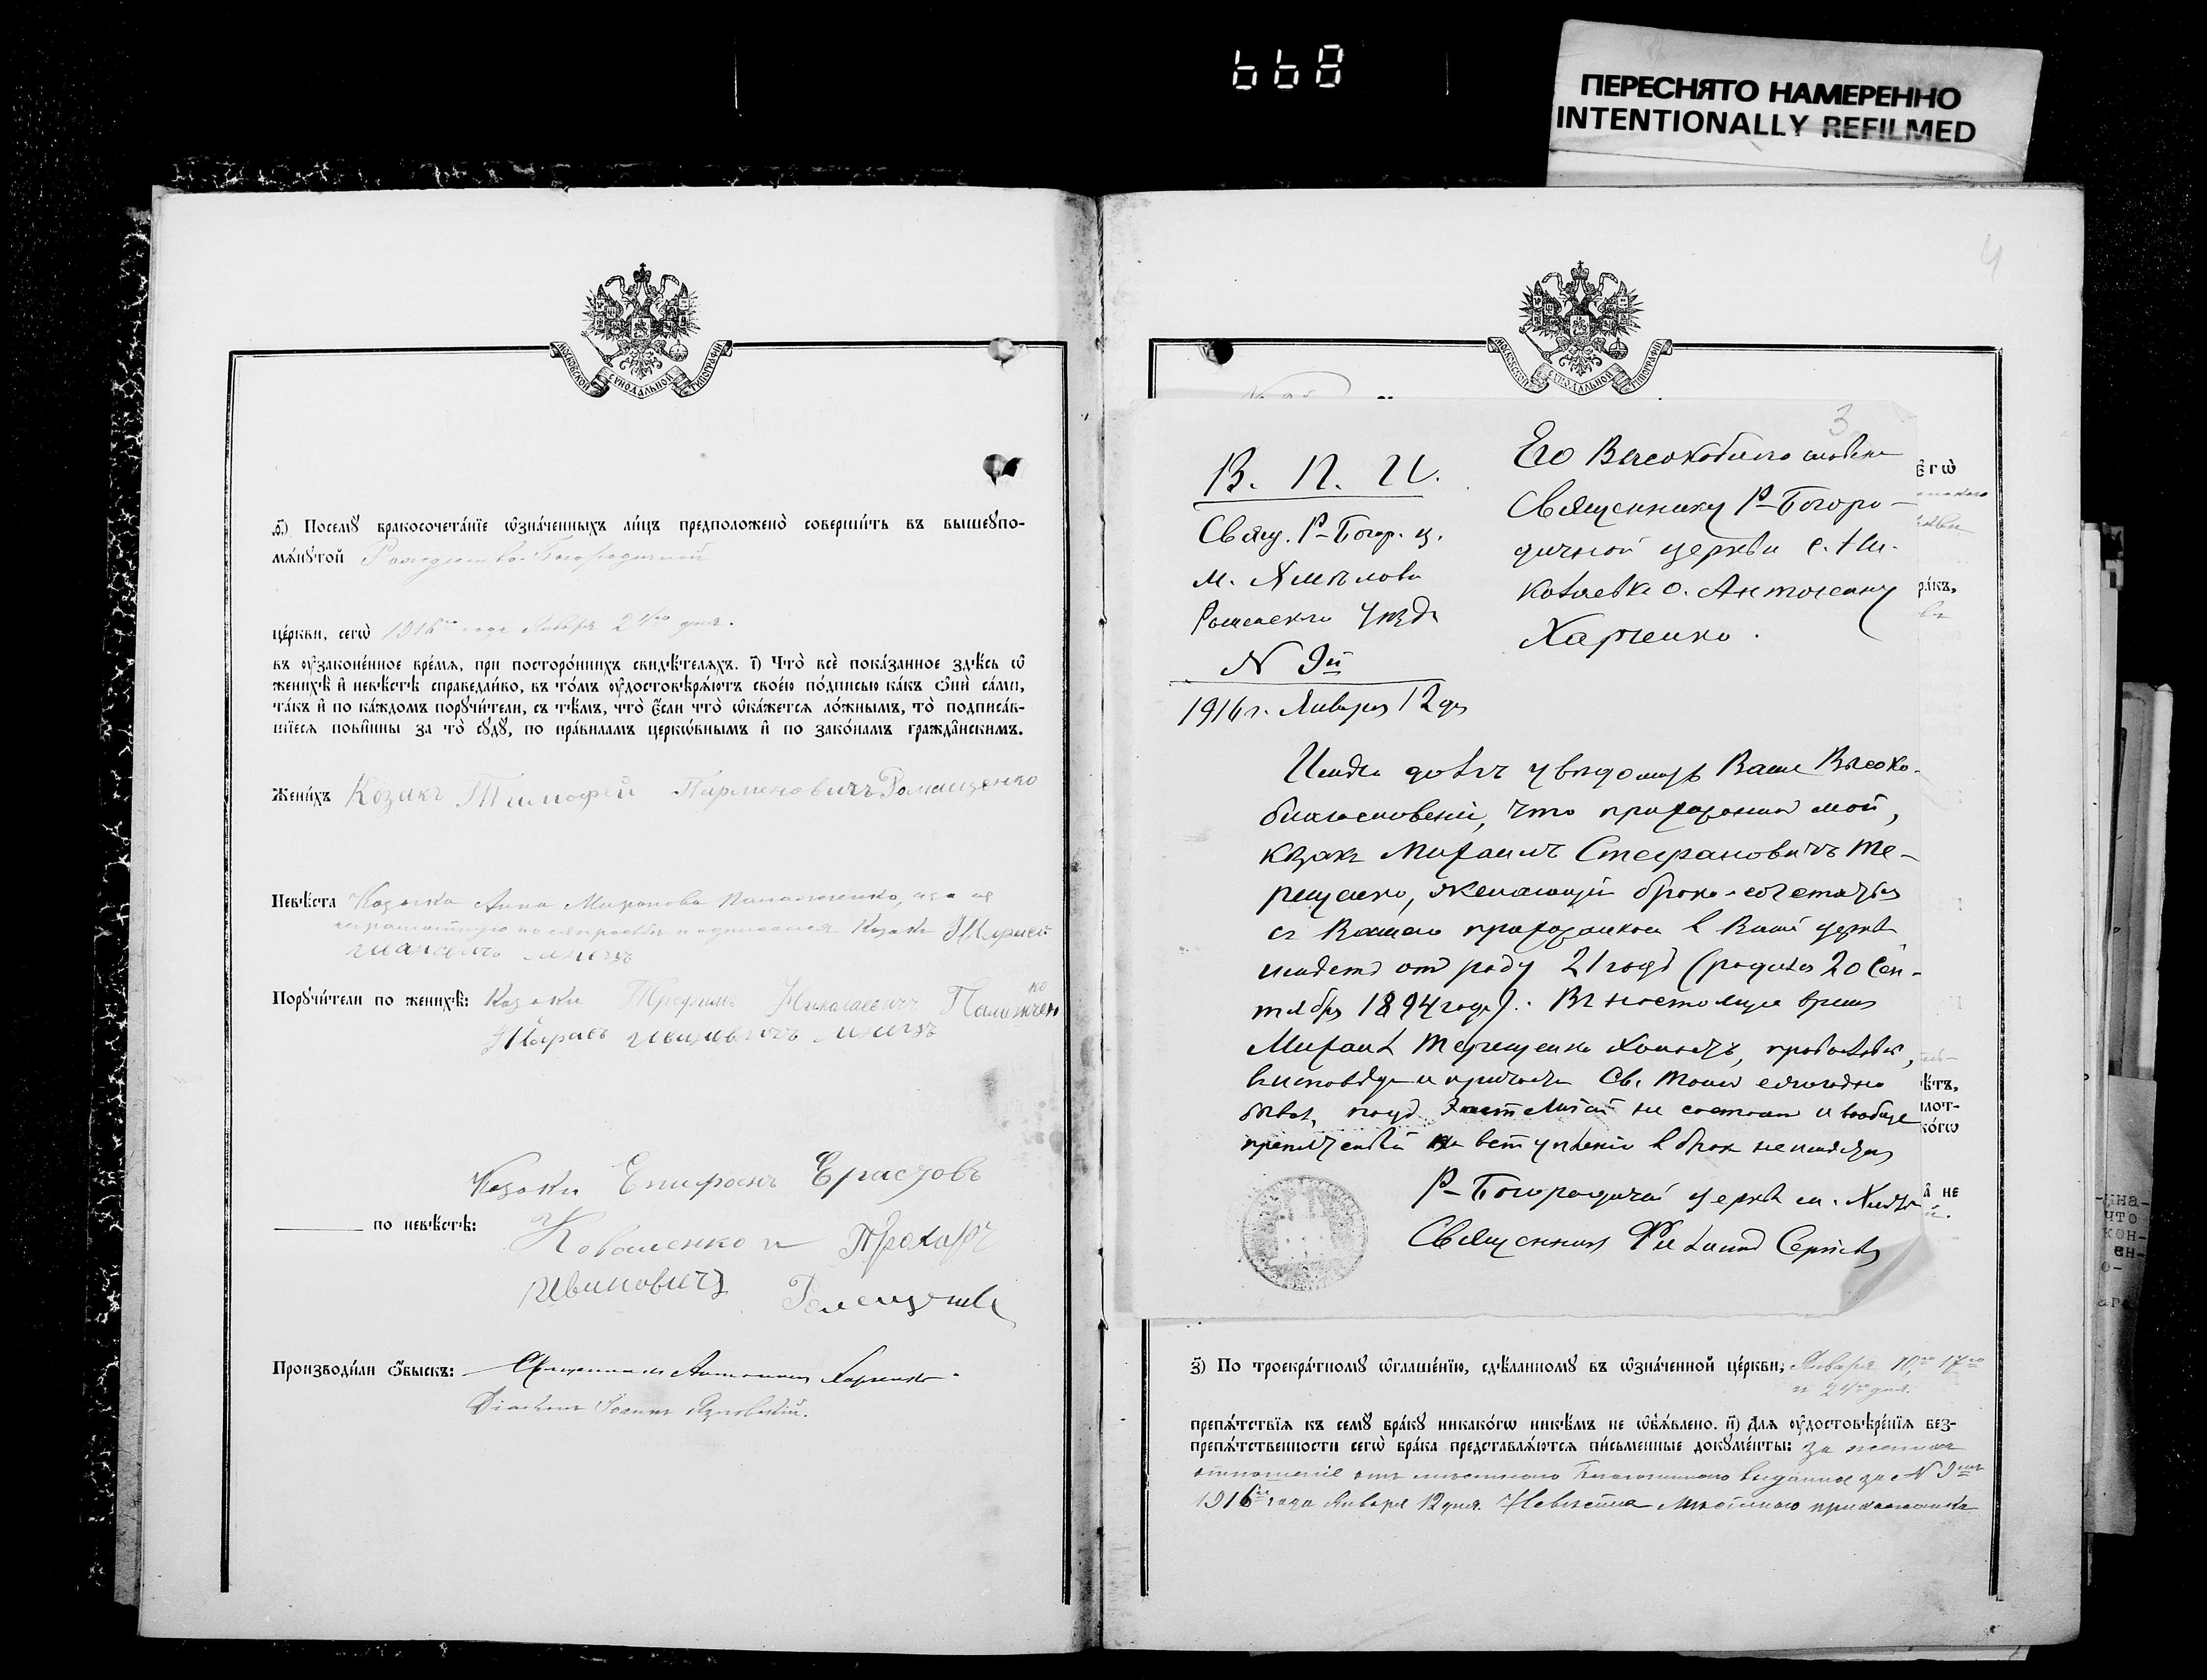 668
ПЕРЕСНЯТО НАМЕРЕННО
INTENTIONALLY REFILMED
МОСКОВСКОЙ СѴНОДАЛЬНОЙ ТИПОГРАФІИ
Посемꙋ̀ бракосочета́нїе ѡ҆зна́ченныхъ ли́цъ предположено̀ соверши́ть въ вышеꙋпо-
мѧ́нꙋтой Рождество-Богородичной
це́ркви, сегѡ̀ 1916го года Января 24го дня.
въ ᲂу҆зако́ненное вре́мѧ, при посторо́ннихъ свидѣ́телѧхъ. і҃) Что̀ всѐ пока́занное здѣ́сь ѡ҆
женихѣ̀ и҆ невѣ́стѣ справедли́во, въ то́мъ ᲂу҆достовѣрѧ́ютъ свое́ю по́дписью ка́къ ѻ҆нѝ са́ми,
та́къ и҆ по ка́ждомъ порꙋчи́тели, съ тѣ́мъ, что̀ є҆́сли что̀ ѡ҆ка́жетсѧ ло́жнымъ, то̀ подписа́в-
шїесѧ пови́нны за то̀ сꙋдꙋ̀, по пра́виламъ церкѡ́внымъ и҆ по зако́намъ гражда̑нскимъ.
Жени́хъ Козакъ Тимофей Парменовичъ Ромащенко
Невѣ́ста Козачка Анна Миронова
Порꙋчи́тели по женихѣ̀: Козаки Трофимъ Николаевичъ
Козаки Епифанъ Ерастовъ
по невѣ́стѣ:
Коваленко и Прохаръ
Ивановичъ
Производи́ли ѻ҆́быскъ: Священникъ Антоній Харченко.
Діаконъ Іоаннъ
4
МОСКОВСКОЙ СѴНОДАЛЬНОЙ ТИПОГРАФІИ
3
В. П. И.
Свящ. Р-Богор. ц.
м. Хмѣлова
Роменскаго Уѣзда
N 9й
1916 г. Января 12 дн
Его Высокоблагословен
Священнику Р-Богоро-
дичной церкви с.
о. Антонию
Харченко.
Имѣю честь увѣдомить Ваше Высоко-
благословеніе, что прихожанинъ мой,
козакъ Михаилъ Стефановичъ Те-
рещенко, желающій брако-сочетаться
съ Вашею прихожанкою въ Вашей церкви
имѣетъ отъ роду 21 годъ (родился 20 Сен-
тября 1894 года). Въ настоящее время
Михаилъ Терещенко холостъ, православный,
на исповѣди и причастіи Св. Тайнъ ежегодно
бывалъ, подъ эпитиміей не состоитъ и вообще
препятствій ко вступленію въ бракъ не имѣетъ
Р-Богородичной церкви м. Хмѣлова
Священникъ
з҃) По троекра́тномꙋ ѡ҆глаше́нїю, сдѣ́ланномꙋ въ ѡ҆зна́ченной це́ркви, Января 10го, 17го
и 24го дня.
препѧ́тствїѧ къ семꙋ̀ бра́кꙋ никако́гѡ никѣ́мъ не ѡ҆б̾ѧ́влено. и҃) Длѧ ᲂу҆достовѣре́нїѧ без-
препѧ́тственности сегѡ̀ бра́ка представлѧ́ютсѧ пи́сьменные докꙋме́нты: за жениха
отношеніе отъ мѣстнаго Благочиннаго выданное за N 9мъ
1916го года Января 12 дня. Невѣста мѣстная прихожанка